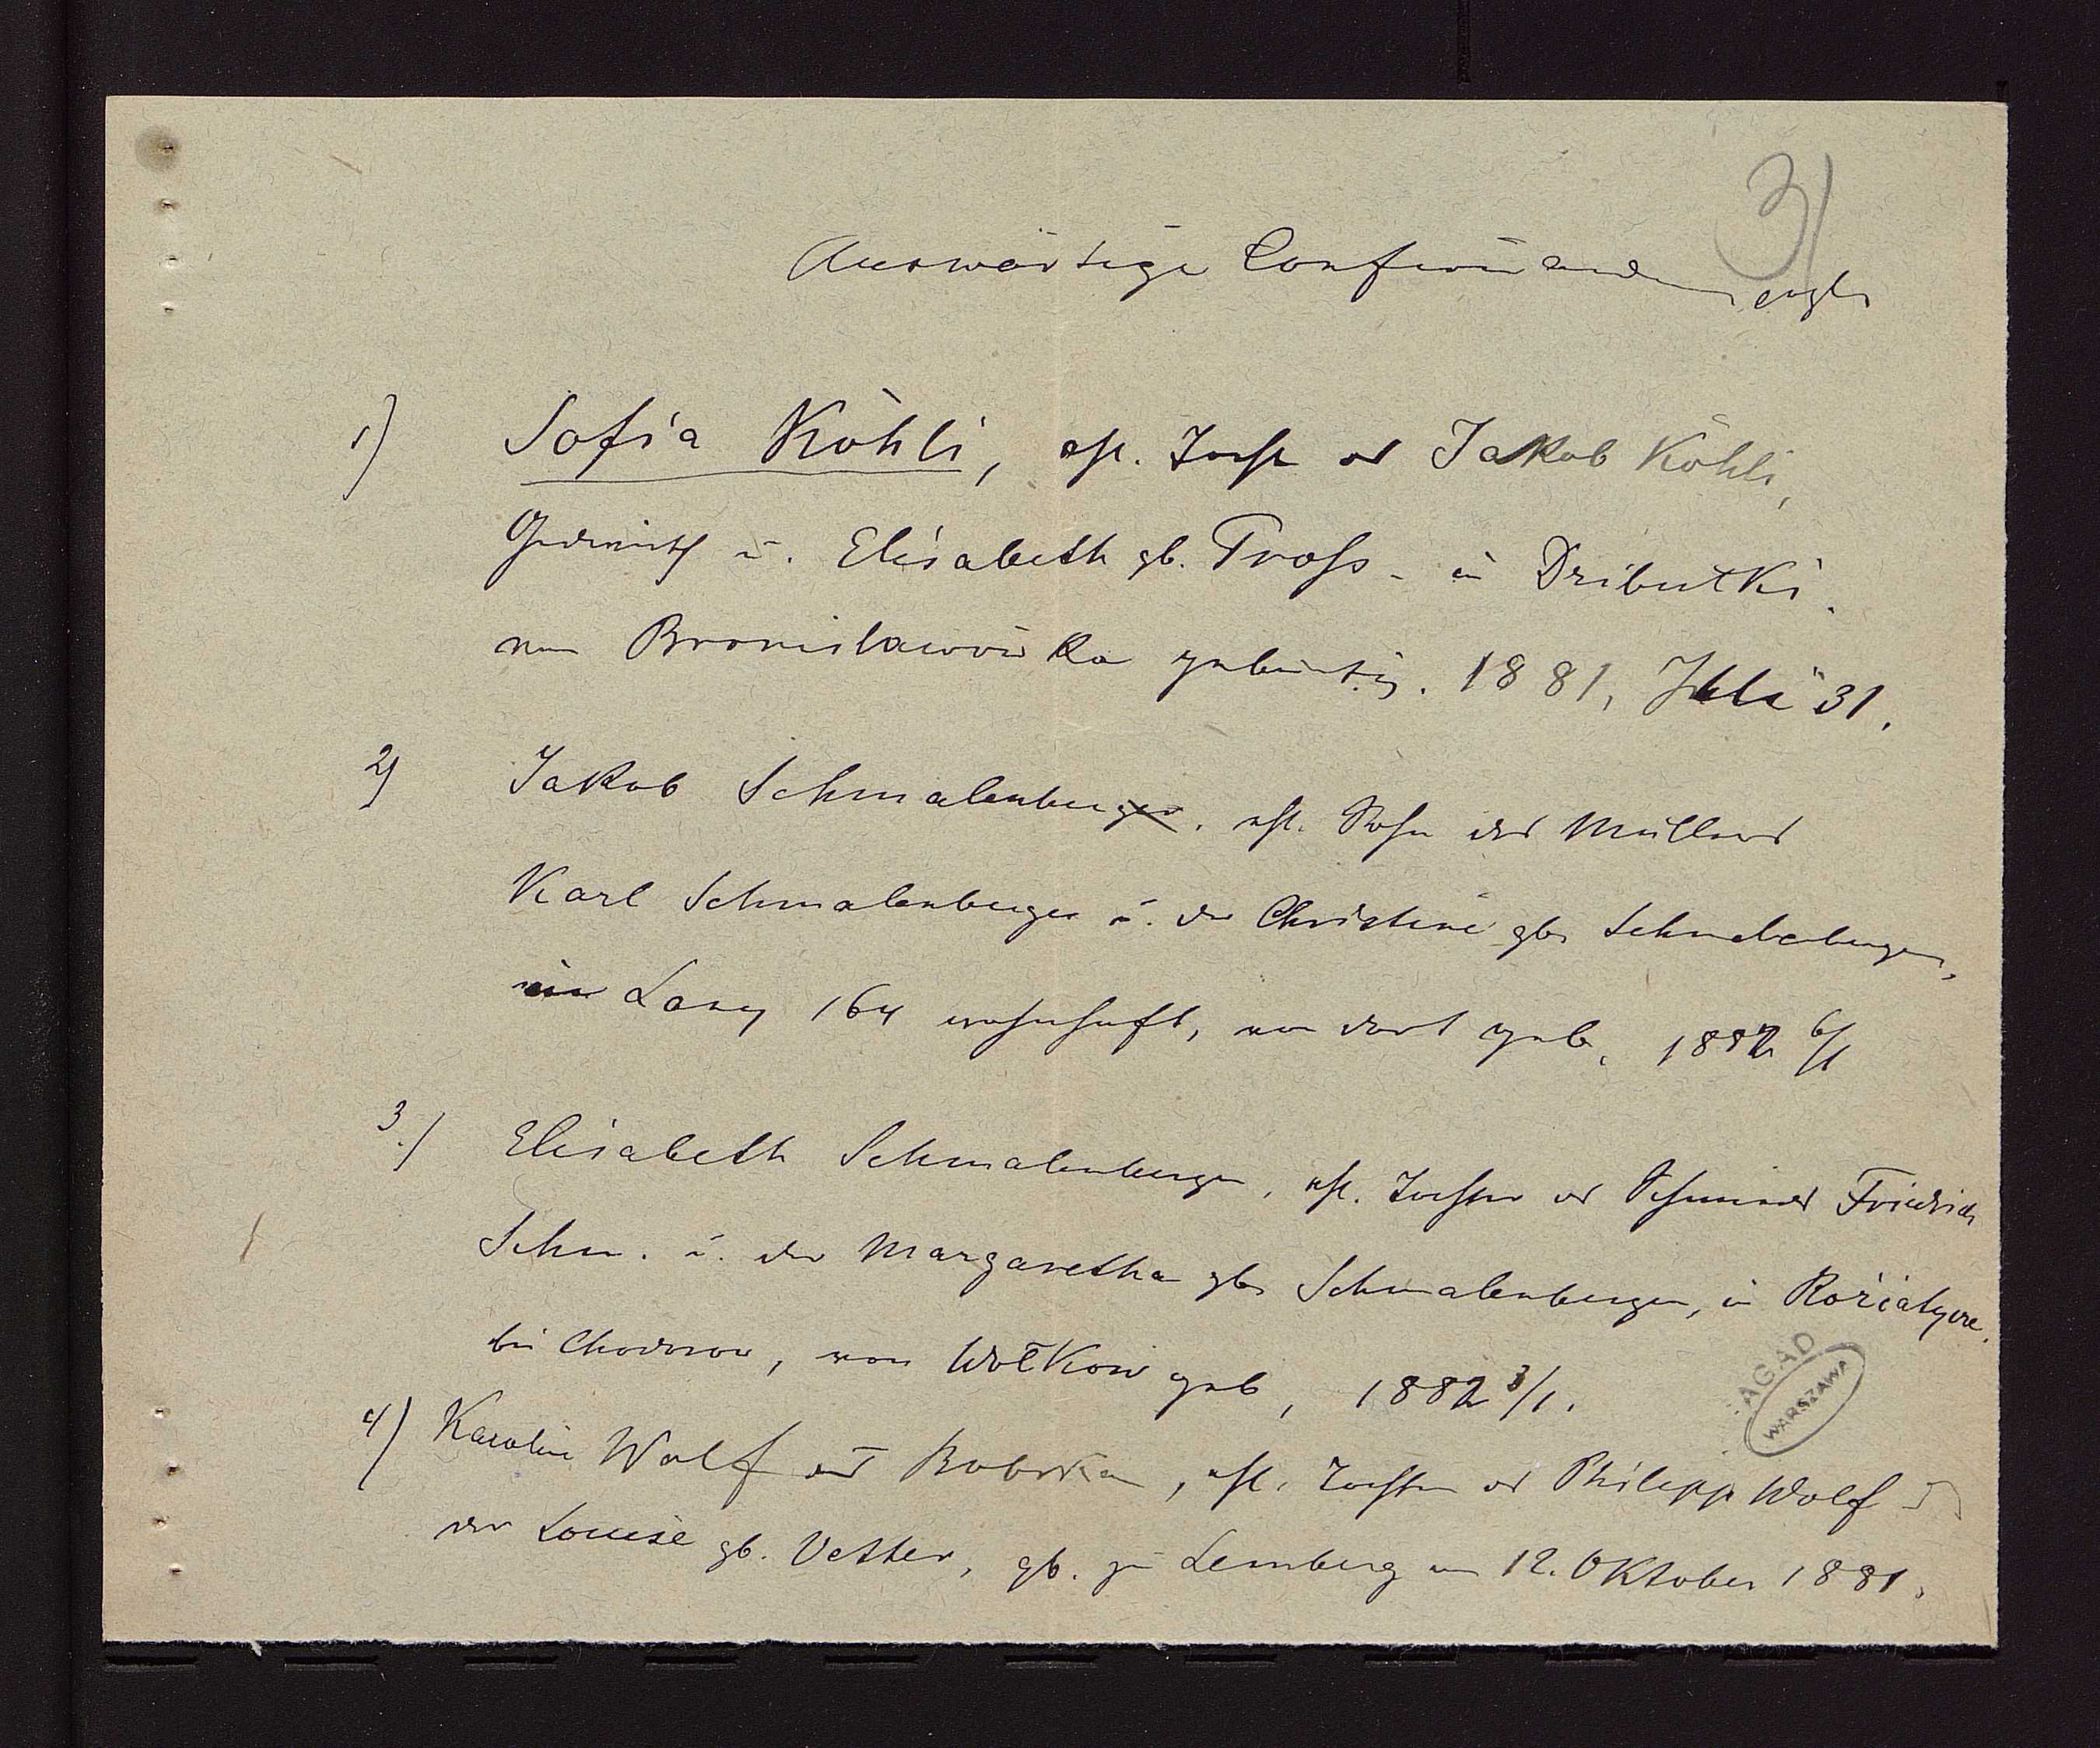 31
Auswärtige Confirmanden
1) Sofia Köhli, ehl. Tocht. des Jakob Köhli,
u. Elisabeth gb. Tross - in Dzibutki.
von Bronislawówka gebürtig. 1881, Juli 31.
2) Jakob Schmalenberger. ehl. Sohn des Müllers
Karl Schmalenberger u. der Christine gb. Schmalenberger,
in Lany 164 wohnhaft, von dort geb. 1882 6/1
3.) Elisabeth Schmalenberger, ehl. Tochter des Friedrich
Schm. u. der Margaretha geb Schmalenberger, in
bei Chodorow, von Wołkow geb, 1882 3/1.
4) Karoline Wolf aus Bobrka, ehl. Tochter des Philipp Wolf u
der Louise gb. Vetter, gb. zu Lemberg am 12. Oktober 1881.
AGAD
WARSZAWA